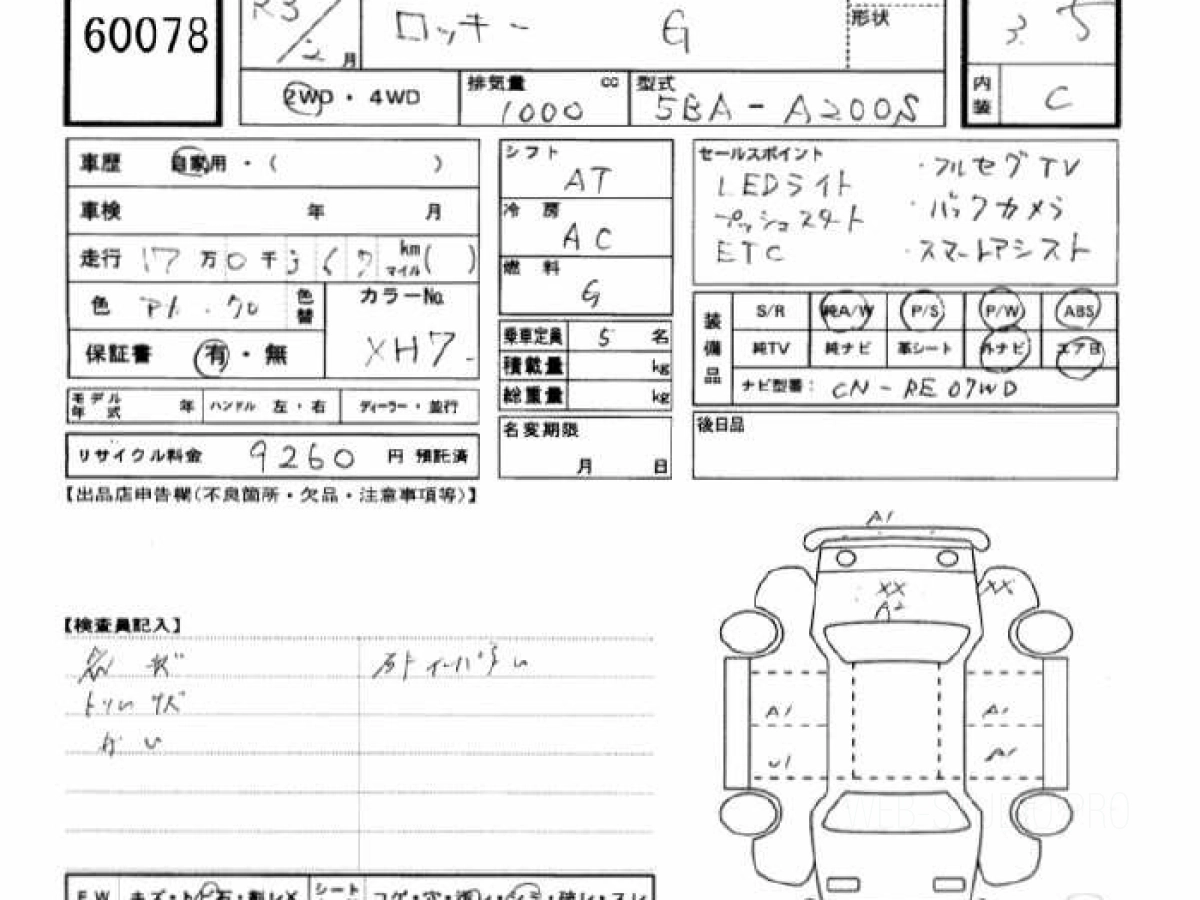 60078
R3/2月
ロッキー G
形状
3.5
2WD・4WD
排気量 cc
1000
型式
5BA-A200S
内装 C
車歴 自家用・( )
車検 年 月
走行 17万0千 km マイル( )
色
色替
カラーNo.
XH7
保証書 有・無
モデル年式 年 ハンドル 左・右 ディーラー・並行
リサイクル料金 9260 円 預託済
シフト
AT
冷房
AC
燃料
G
乗車定員 5 名
積載量 kg
総重量 kg
名変期限
月 日
セールスポイント
LEDライト
プッシュスタート
ETC
・フルセグTV
・バックカメラ
・スマートアシスト
装備品
S/R 純A/W P/S P/W ABS
純TV 純ナビ 革シート 外ナビ エアB
ナビ型番: CN-RE07WD
後日品
【出品店申告欄(不良箇所・欠品・注意事項等)】
【検査員記入】
A1
XX
A2
XX
A1
A1
U1
A1
WEB-STUDIO PRO
F W
シート